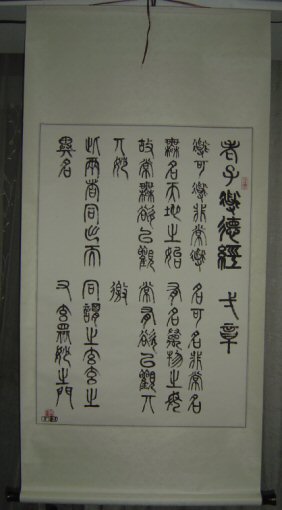 老子道德經 弌章
道可道非常道 名可名非常名
無名天地之始 有名萬物之母
故常無欲以觀 常有欲以觀丌
丌妙 徼
此兩者同出而 同謂之玄玄之
異名 又玄眾妙之門